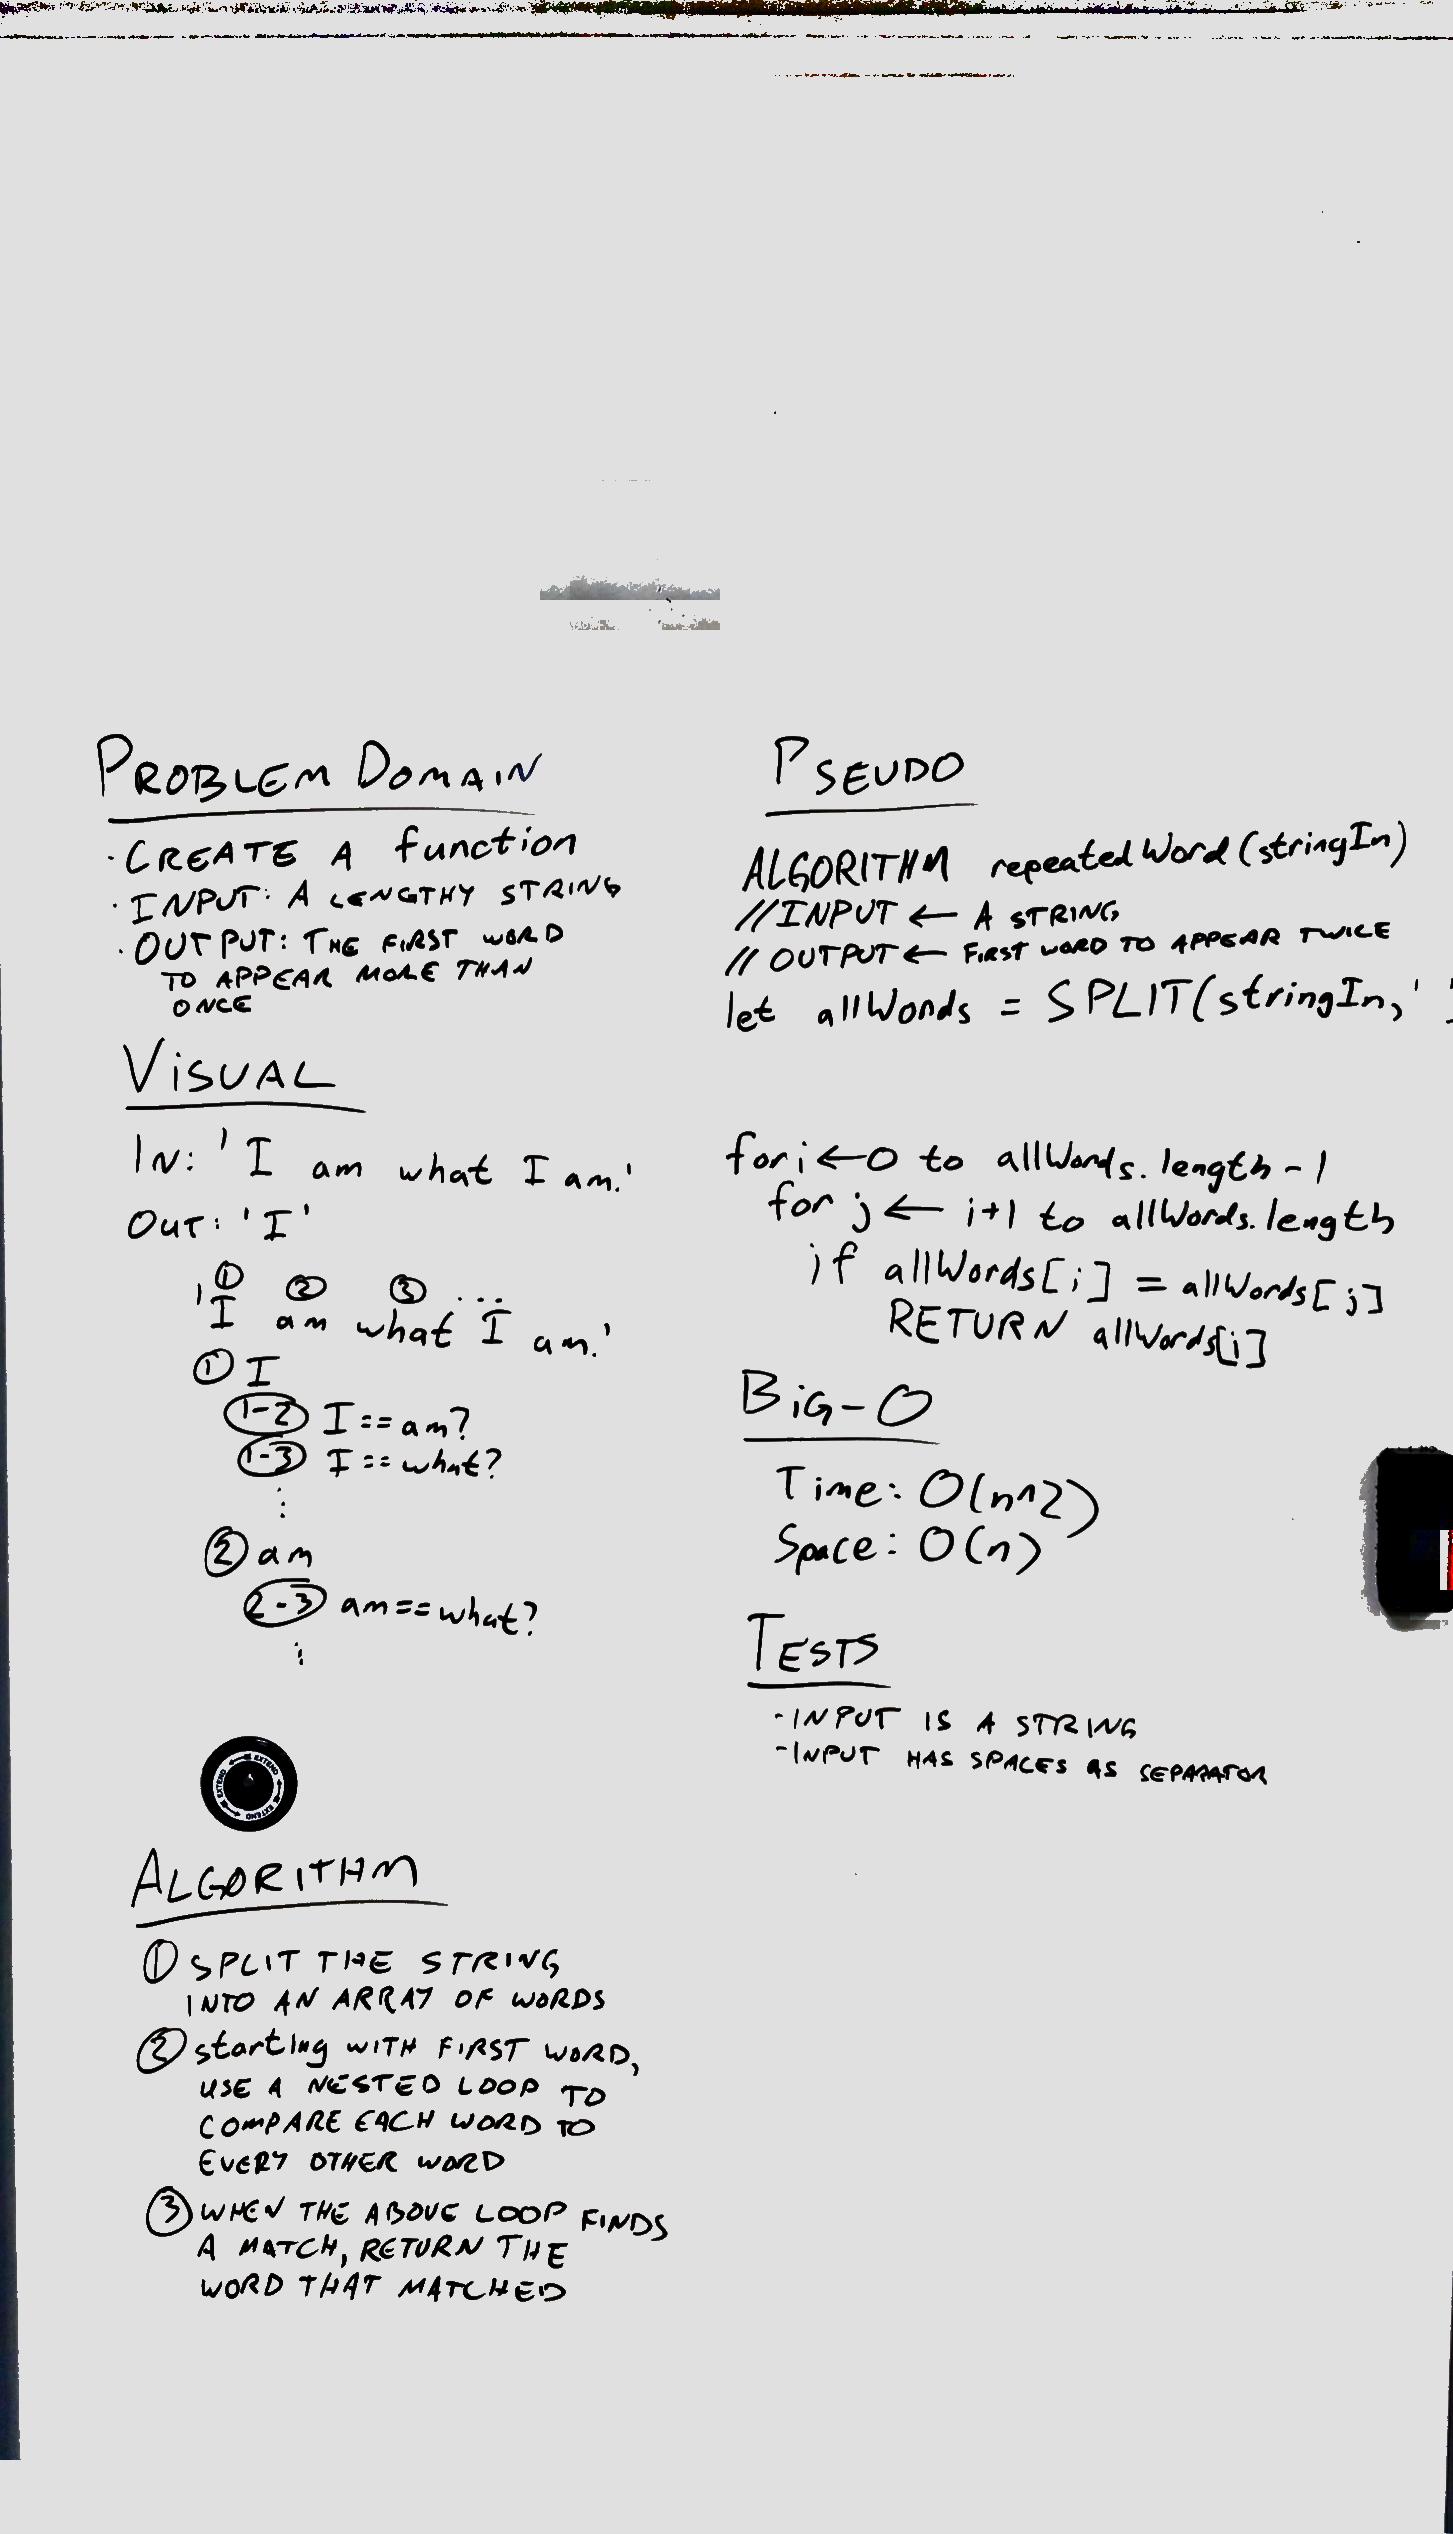 PROBLEM DOMAIN
· CREATE A function
· INPUT: A LENGTHY STRING
· OUTPUT: THE FIRST WORD
TO APPEAR MORE THAN
ONCE
VISUAL
IN: 'I am what I am.'
OUT: 'I'
① ② ③ ...
'I am what I am.'
① I
1-2 I == am?
1-3 I == what?
⋮
② am
2-3 am == what?
⋮
EXTEND EXTEND EXTEND EXTEND
ALGORITHM
① SPLIT THE STRING
INTO AN ARRAY OF WORDS
② starting WITH FIRST WORD,
USE A NESTED LOOP TO
COMPARE EACH WORD TO
EVERY OTHER WORD
③ WHEN THE ABOVE LOOP FINDS
A MATCH, RETURN THE
WORD THAT MATCHED
PSEUDO
ALGORITHM repeatedWord(stringIn)
// INPUT ← A STRING
// OUTPUT ← FIRST WORD TO APPEAR TWICE
let allWords = SPLIT(stringIn, ' '
for i ← 0 to allWords.length - 1
for j ← i+1 to allWords.length
if allWords[i] = allWords[j]
RETURN allWords[i]
BIG-O
Time: O(n^2)
Space: O(n)
TESTS
- INPUT IS A STRING
- INPUT HAS SPACES AS SEPARATOR